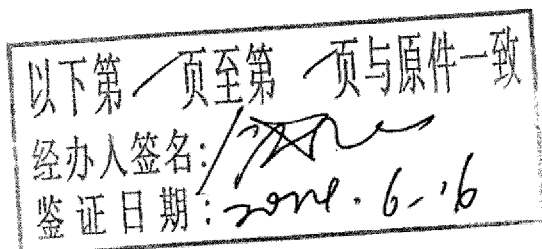 以下第 页至第 页与原件一致
经办人签名:
鉴证日期: 6.16